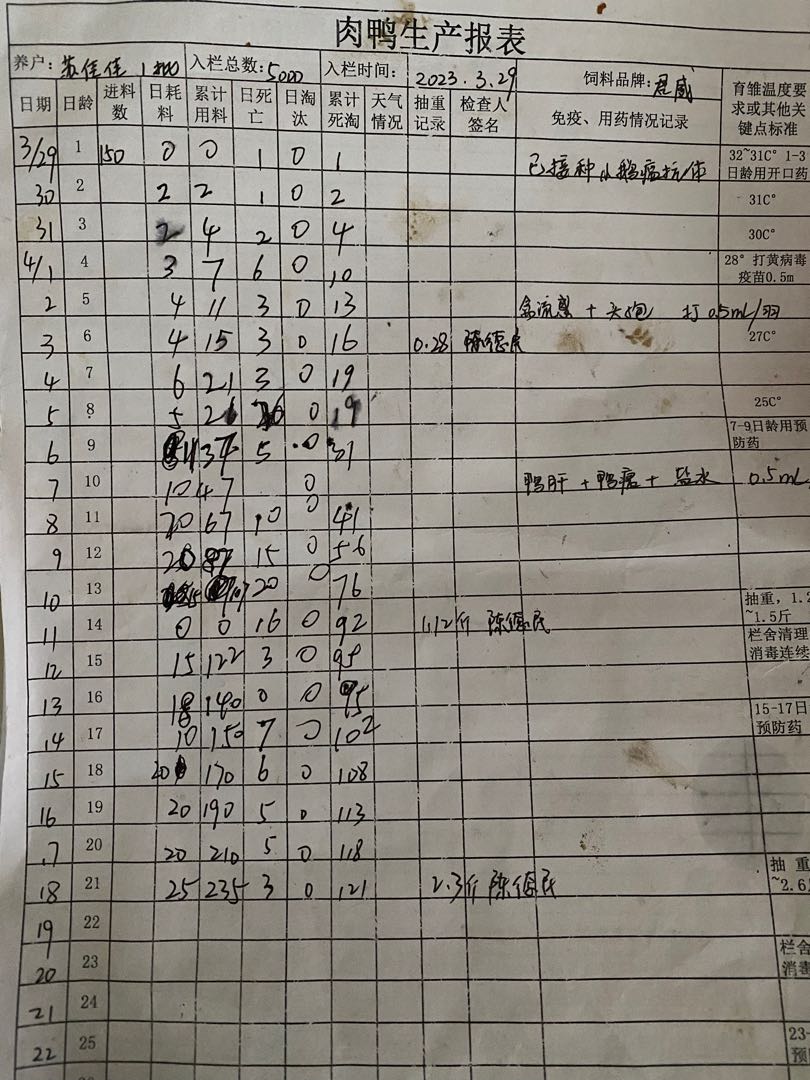 肉鸭生产报表
养户: 苏佳佳 入栏总数: 5000 入栏时间: 2023.3.29 饲料品牌: 育雏温度要求或其他关键点标准
日期 日龄 进料数 日耗料 累计用料 日死亡 日淘汰 累计死淘 天气情况 抽重记录 检查人签名 免疫、用药情况记录
3/29 1 150 0 0 1 0 1 已接种小鹅瘟抗体 32~31C° 1-3日龄用开口药
30 2 2 2 1 0 2 31C°
31 3 2 4 2 0 4 30C°
4/1 4 3 7 6 0 10 28° 打黄病毒疫苗0.5m
2 5 4 11 3 0 13 禽流感 + 打 0.5ml/羽
3 6 4 15 3 0 16 0.28 陈德民 27C°
4 7 6 21 3 0 19
5 8 5 26 0 19 25C°
6 9 37 5 0 31 7-9日龄用预防药
7 10 10 47 0 鸭肝 + 鸭瘟 + 盐水 0.5mL
8 11 20 67 10 0 41
9 12 20 87 15 0 56
10 13 20 0 76
11 14 0 0 16 0 92 1.12斤 陈德民 抽重，1.2~1.5斤
12 15 15 122 3 0 95 栏舍清理消毒连续
13 16 18 140 0 0 95
14 17 10 150 7 0 102 15-17日预防药
15 18 20 170 6 0 108
16 19 20 190 5 0 113
17 20 20 210 5 0 118
18 21 25 235 3 0 121 2.3斤 陈德民 抽重~2.6
19 22
20 23 栏舍消毒
21 24
22 25 23-预